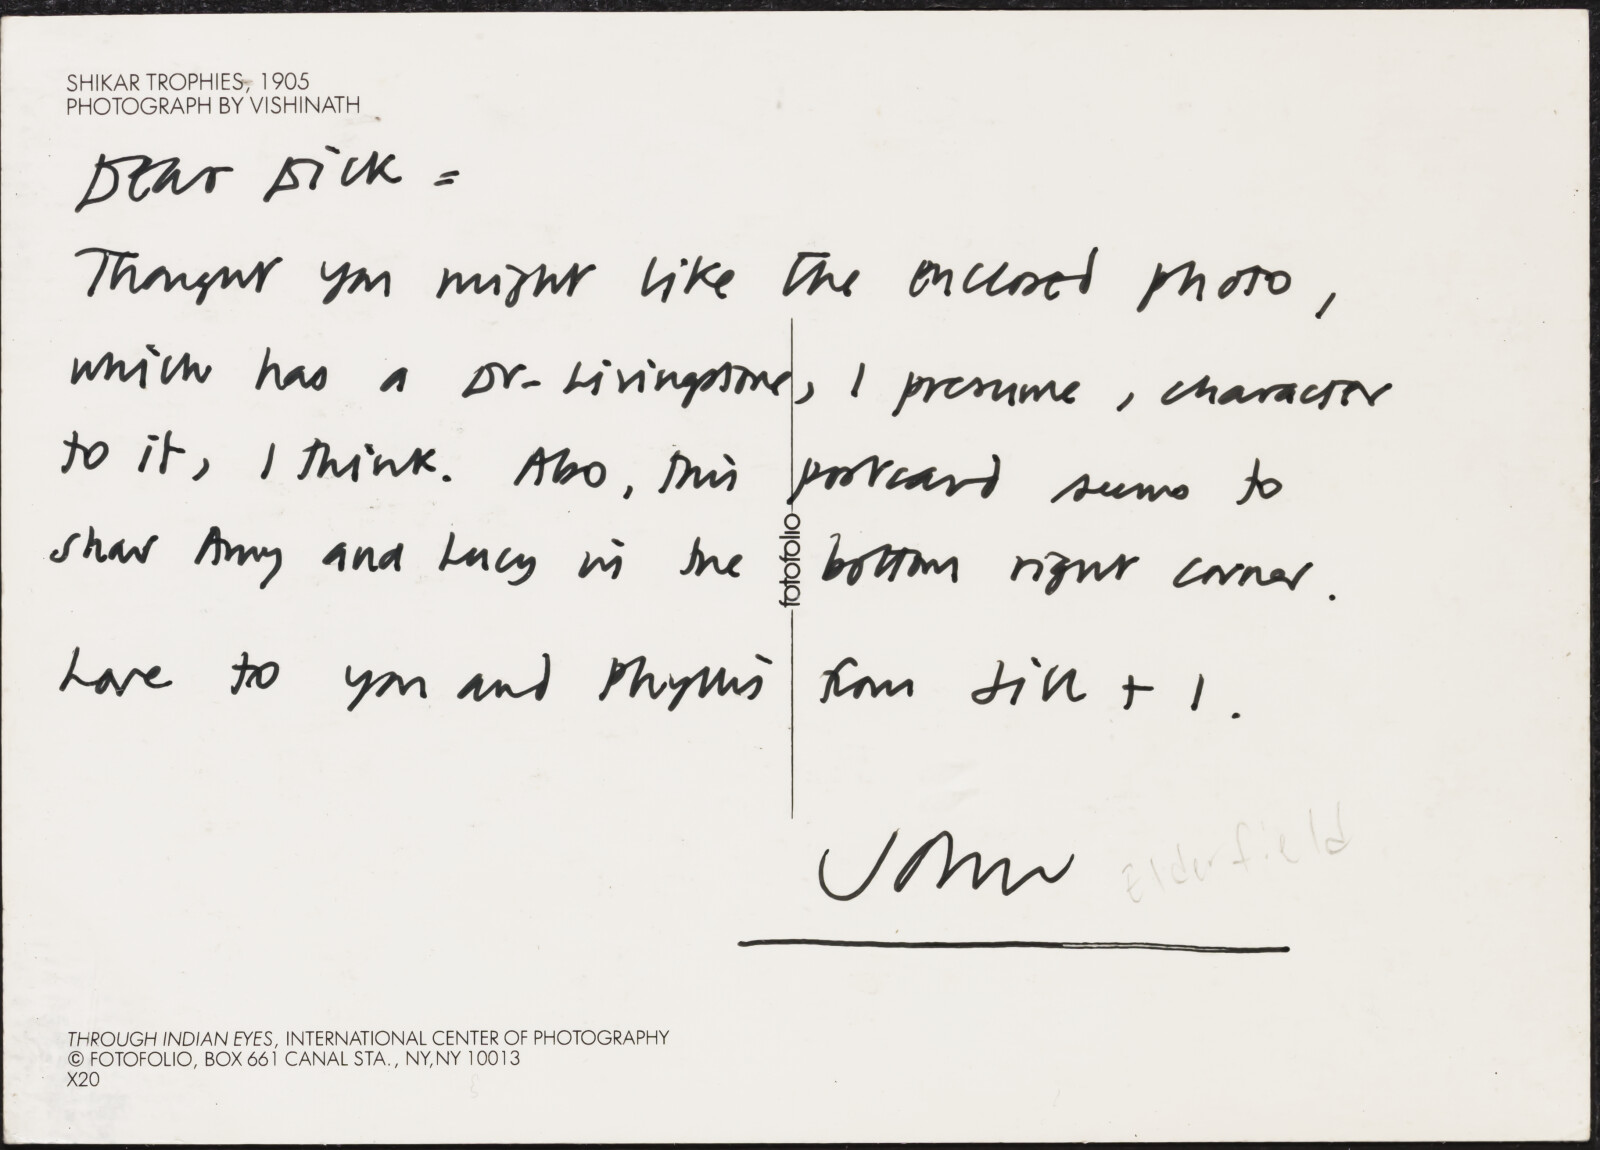 SHIKAR TROPHIES, 1905
PHOTOGRAPH BY VISHINATH
Dear Dick =
Thought you might like the enclosed photo,
which has a Dr. Livingstone, I presume, character
to it, I think. Also, this postcard seems to
show Amy and Lucy in the bottom right corner.
Love to you and Phyllis from Jill + I.
John
Elderfield
fotofolio
THROUGH INDIAN EYES, INTERNATIONAL CENTER OF PHOTOGRAPHY
© FOTOFOLIO, BOX 661 CANAL STA., NY, NY 10013
X20